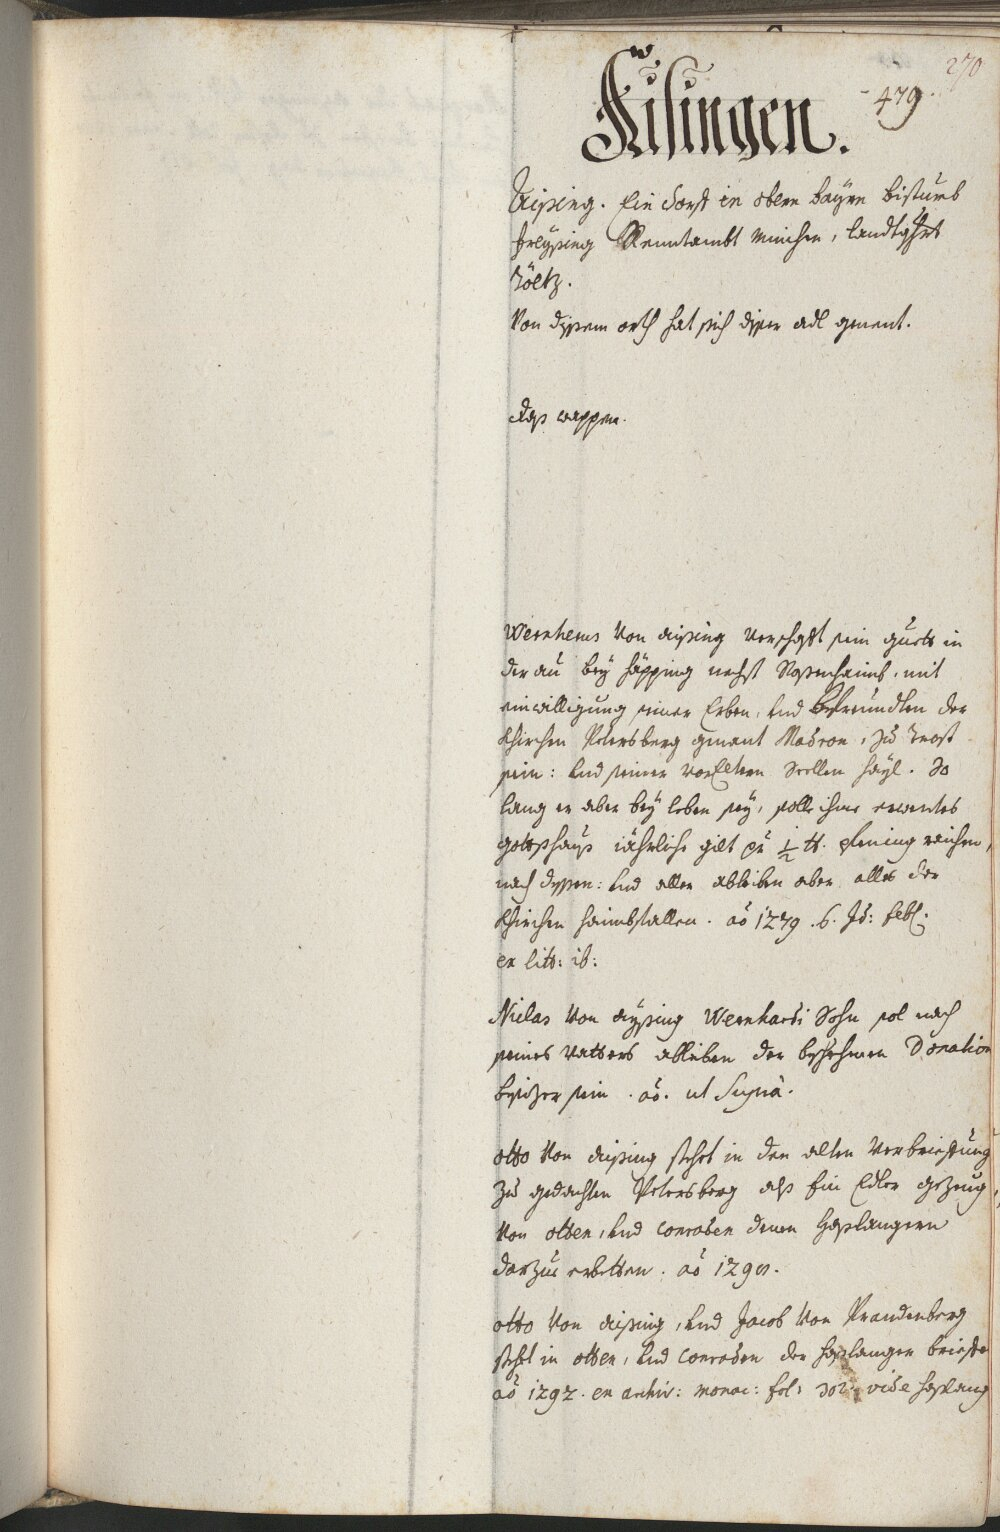 270
479.
Aisingen.
Aising. Ein dorf in obern bayrn bistumb
freysing Renntambt Minchen, landtghrt
Töltz.
Von dissem orth hat sich diser adl genent.
Das wappen.
Wernherus Von aising verschafft sein guett in
der au bey Häpping nechst Rosenhaimb, mit
einwilligung seiner Erben, und befreundten der
Khirchen Petersberg genant Madron, zu trost
sein: und seiner vorEltern Seellen hayl. So
lang er aber bey leben sey, solle ihme
gottshaus iährliche gilt pr ½ tt. pfening raichen,
nach dessen: und aller ableiben aber alles der
Khirchen haimbfallen. aō 1279. 6. Id: febr.
ex litt: ib:
Niclas Von aysing Wernhardi Sohn sol nach
seines vatters ableiben der Donation
besizer sein. aō. ut Supra.
otto Von aising stehet in den alten verbriefung
zu gedachten Petersberg als Ein Edler gezeug,
Von otten, und conraden denen Haslangern
darzue erbetten. aō
otto Von aising, und Jacob Von Prandenberg
stehet in otten, und conraden der haslanger briefe
aō 1292. ex archiv: monac: fol: 302. vide haslang